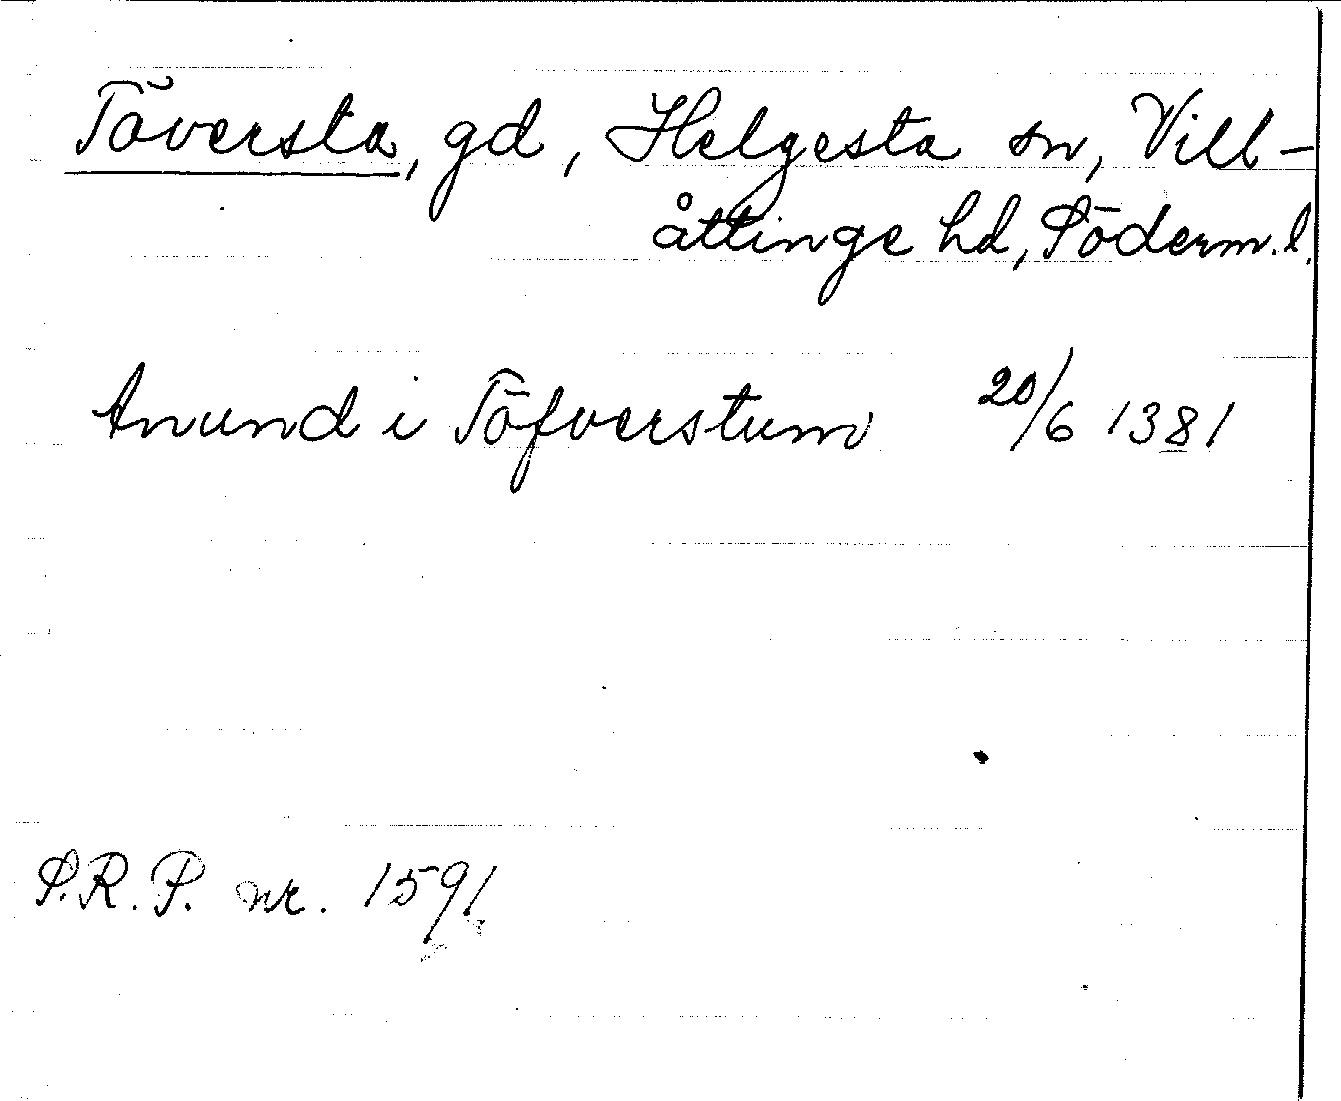 Töversta, gd, Helgesta sn, Vill-
åttinge hd, Söderm.l.
Anund i Töfverstum 20/6 1381
S.R.P. nr. 1591